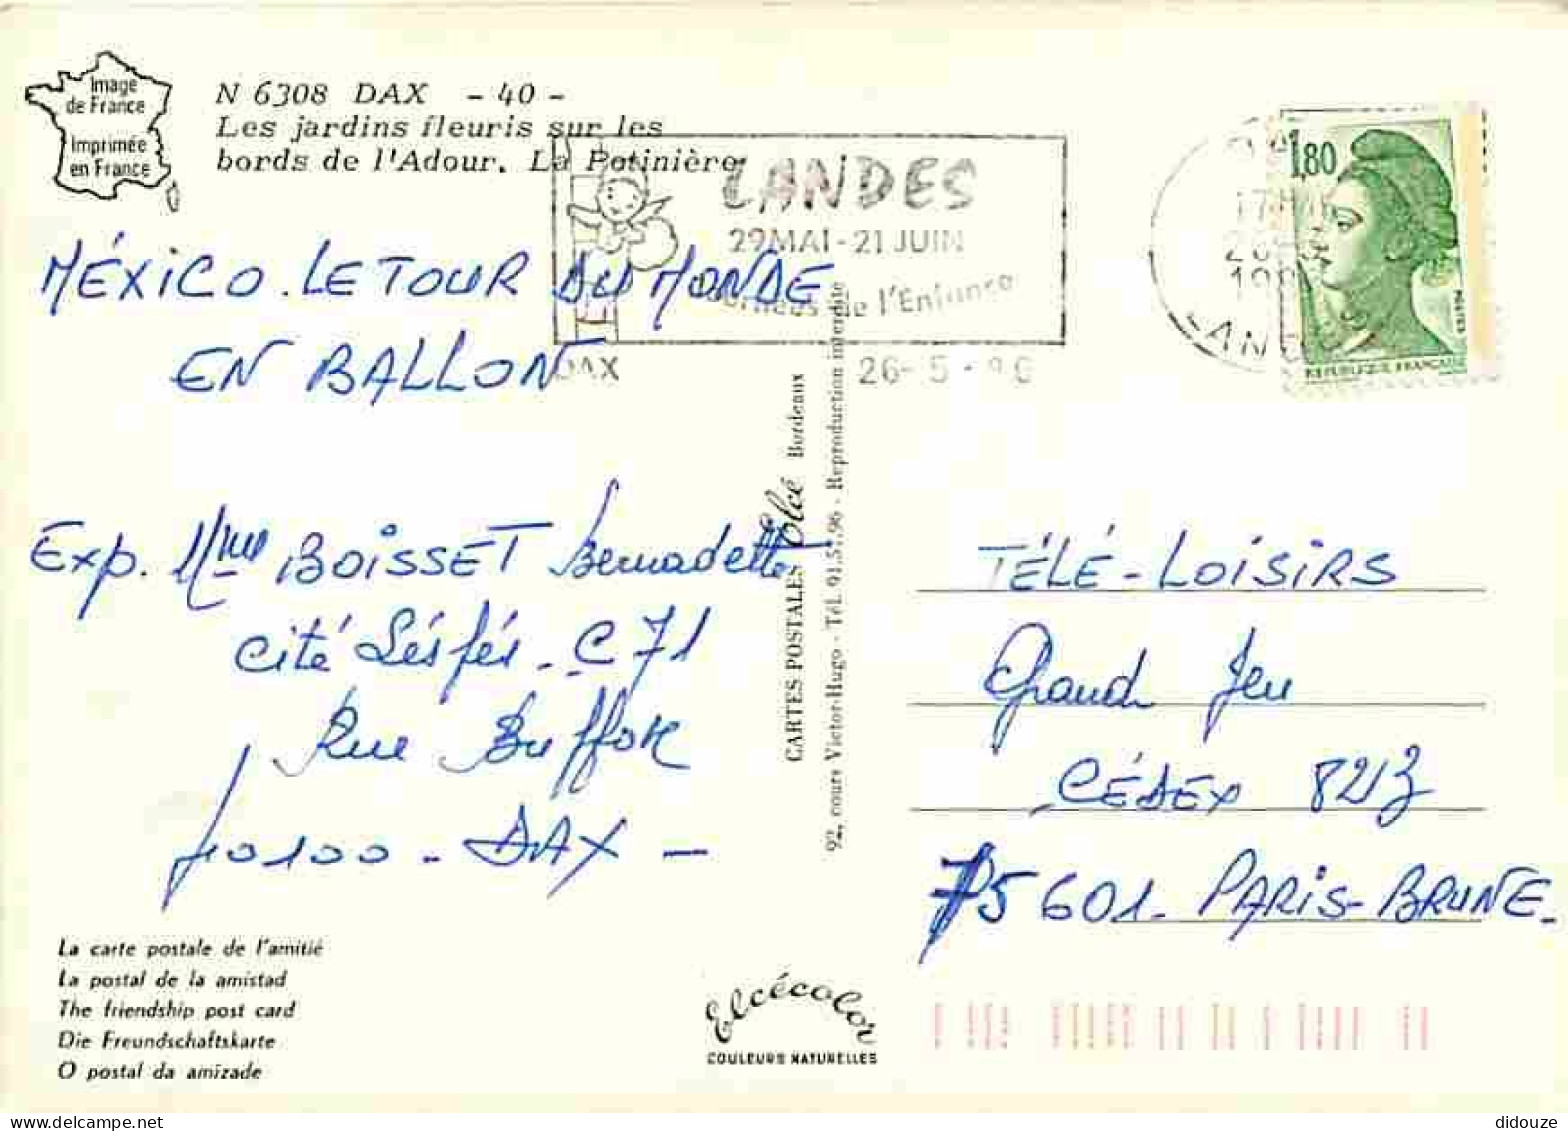 Image
de France
Imprimée
en France
N 6308 DAX - 40 -
Les jardins fleuris sur les
bords de l'Adour. La Potinière
LANDES
29 MAI - 21 JUIN
de l'Enfance
DAX
26-5-86
1.80
POSTES
REPUBLIQUE FRANÇAISE
MÉXICO. LE TOUR DU MONDE
EN BALLON
Exp. Mme BOISSET Bernadette
Cité - C 71
Rue Buffon
40100 - DAX -
CARTES POSTALES Elcé Bordeaux
92, cours Victor-Hugo - Tél. 91.57.96 - Reproduction interdite
TÉLÉ-LOISIRS
Grand Jeu
CÉDEX 8213
75601 - PARIS-BRUNE.
La carte postale de l'amitié
La postal de la amistad
The friendship post card
Die Freundschaftskarte
O postal da amizade
Elcécolor
COULEURS NATURELLES
didouze